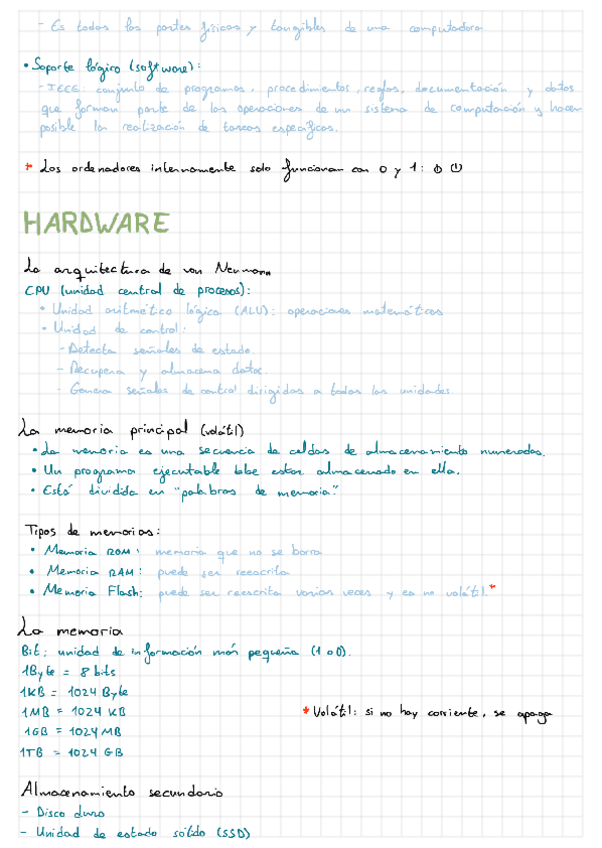 - Es todas las partes físicas y tangibles de una computadora
• Soporte lógico (software):
- IEEE: conjunto de programas, procedimientos, reglas, documentación y datos
que forman parte de las operaciones de un sistema de computación y hacen
posible la realización de tareas específicas.
* Los ordenadores internamente solo funcionan con 0 y 1:
HARDWARE
La arquitectura de von Neumann
CPU (unidad central de procesos):
• Unidad aritmético lógica (ALU): operaciones matemáticas
• Unidad de control:
- Detecta señales de estado.
- Recupera y almacena datos.
- Genera señales de control dirigidas a todas las unidades.
La memoria principal (volátil)
• La memoria es una secuencia de celdas de almacenamiento numeradas.
• Un programa ejecutable debe estar almacenado en ella.
• Está dividida en "palabras de memoria."
Tipos de memorias:
• Memoria ROM: memoria que no se borra
• Memoria RAM: puede ser reescrita
• Memoria Flash: puede ser reescrita varias veces y es no volátil.*
La memoria
Bit: unidad de información más pequeña (1 o 0).
1Byte = 8 bits
1KB = 1024 Byte
1MB = 1024 KB
* Volátil: si no hay corriente, se apaga
1GB = 1024 MB
1TB = 1024 GB
Almacenamiento secundario
- Disco duro
- Unidad de estado sólido (SSD)